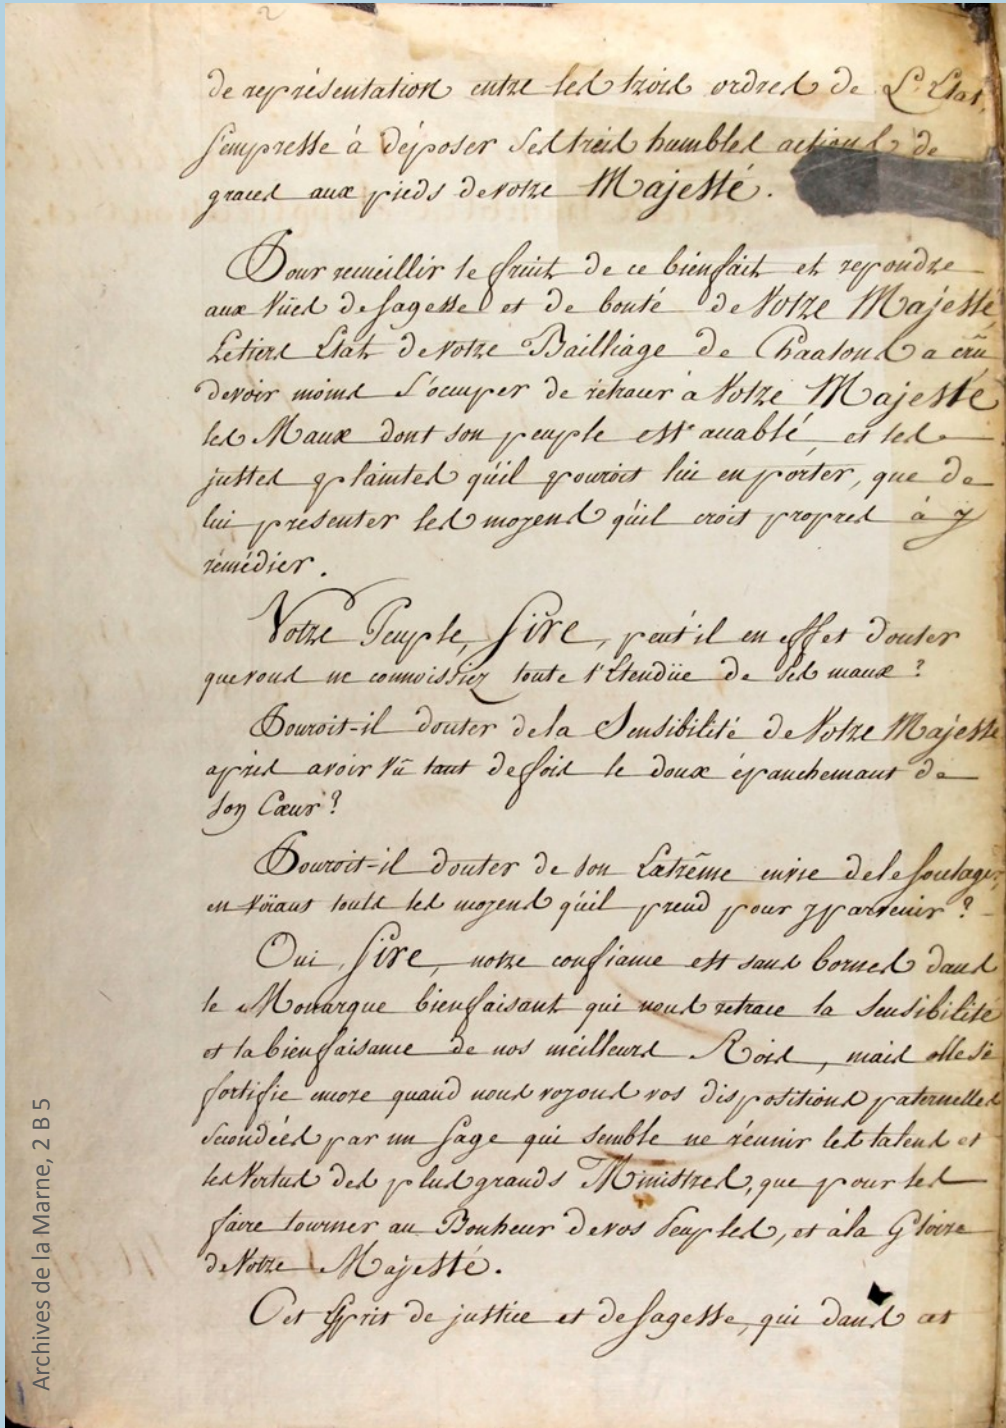 2
de représentation entre les trois ordres de L'Etat,
s'empresse à déposer ses trèis humbles actions de
graces aux pieds de votre Majesté.
Pour recueillir le fruit de ce bienfait et repondre
aux vües de sagesse et de bonté de Votre Majesté,
Le tiers Etat de votre Bailliage de Chaalons a crû
devoir moins s'occuper de rétracer à Votre Majesté
les Maux dont son peuple est accablé, et les
justes plaintes qu'il pouroit lui en porter, que de
lui presenter les moyens qu'il croit propres à y
rémédier.
Votre Peuple, Sire, peut il en effet douter
que vous ne connoissiez toute l'Etendüe de ses maux ?
Pouroit-il douter de la Sensibilité de Votre Majesté
après avoir vû tant de fois le doux épanchemant de
son Cœur ?
Pouroit-il douter de son Extrême envie de le soulager,
en voïant touts les moyens qu'il prend pour y parvenir ?
Oui, Sire, notre confiance est sans bornes dans
le Monarque bienfaisant qui nous retrace la sensibilité
et la bienfaisance de nos meilleurs Rois, mais elle se
fortifie encore quand nous voyons vos dispositions paternelles
secondées par un sage qui semble ne réunir les talens et
les Vertus des plus grands Ministres, que pour les
faire tourner au Bonheur de vos Peuples, et à la Gloire
de Votre Majesté.
Cet Esprit de justice et de sagesse, qui dans cet
Archives de la Marne, 2 B 5